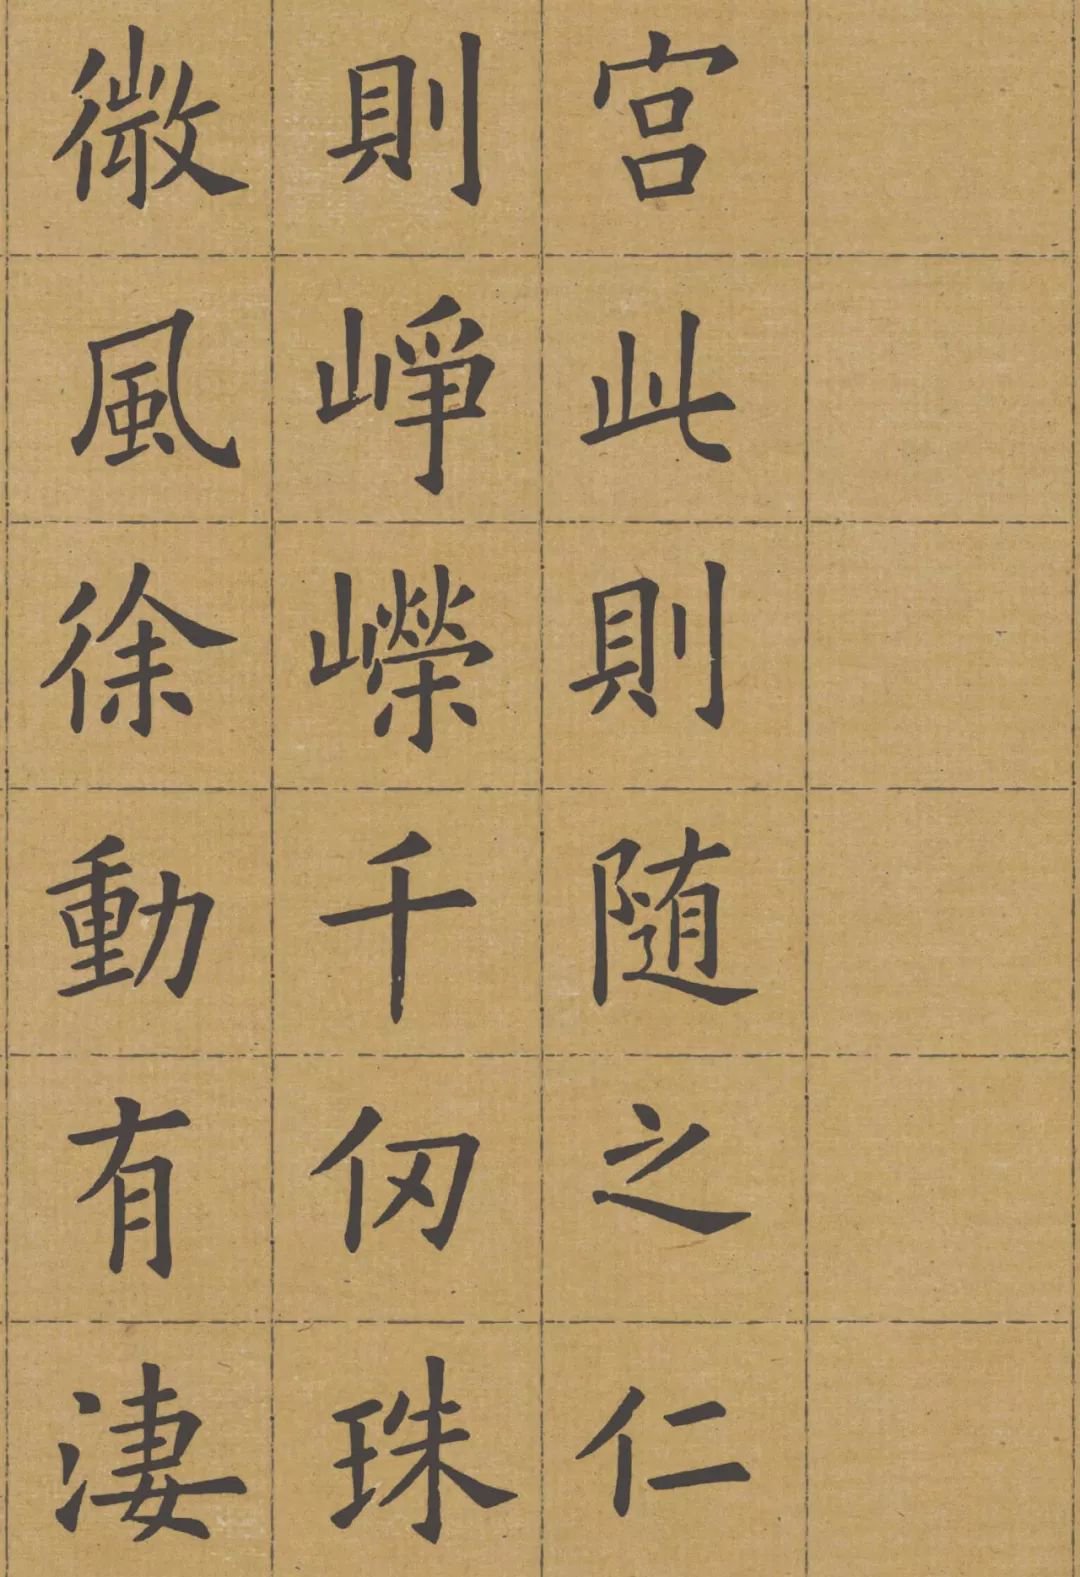 宫此則随之仁
則崢嶸千仞珠
微風徐動有淒